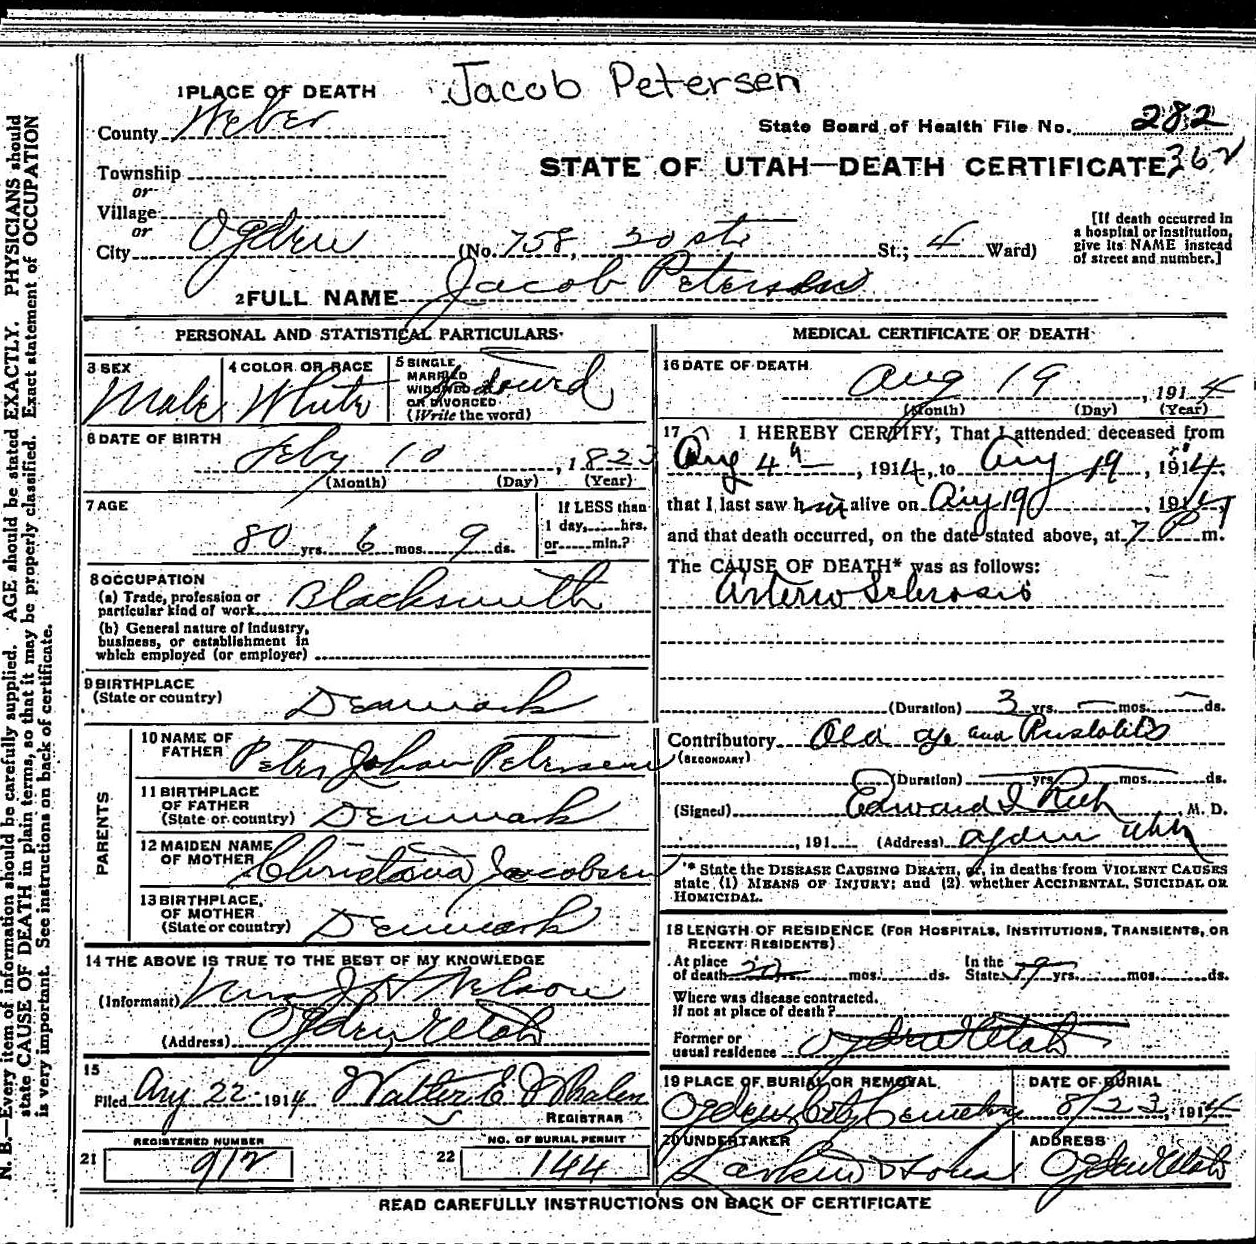 Jacob Petersen
1 PLACE OF DEATH
County Weber
State Board of Health File No. 282
STATE OF UTAH—DEATH CERTIFICATE 362
Township
or
Village
or
City Ogden (No. 758, 30 St.; 4 Ward)
[If death occurred in a hospital or institution, give its NAME instead of street and number.]
2 FULL NAME Jacob Petersen
PERSONAL AND STATISTICAL PARTICULARS
3 SEX Male
4 COLOR OR RACE White
5 SINGLE, MARRIED WIDOWED OR DIVORCED (Write the word)
6 DATE OF BIRTH
Feby 10, 1823
(Month) (Day) (Year)
7 AGE
80 yrs. 6 mos. 9 ds.
If LESS than 1 day,......hrs. or......min.?
8 OCCUPATION
(a) Trade, profession or particular kind of work Blacksmith
(b) General nature of industry, business, or establishment in which employed (or employer)
9 BIRTHPLACE
(State or country) Denmark
PARENTS
10 NAME OF FATHER Peter Johan Petersen
11 BIRTHPLACE OF FATHER (State or country) Denmark
12 MAIDEN NAME OF MOTHER Jacobsen
13 BIRTHPLACE, OF MOTHER (State or country) Denmark
14 THE ABOVE IS TRUE TO THE BEST OF MY KNOWLEDGE
(Informant) Nelson
(Address) Ogden Utah
15
Filed Aug 22 1914 Walter E Whalen
REGISTRAR
REGISTERED NUMBER
21 912
NO. OF BURIAL PERMIT
22 144
MEDICAL CERTIFICATE OF DEATH
16 DATE OF DEATH
Aug 19, 1914
(Month) (Day) (Year)
17 I HEREBY CERTIFY, That I attended deceased from
Aug 4th, 1914, to Aug 19, 1914,
that I last saw him alive on Aug 19, 1914,
and that death occurred, on the date stated above, at 7 P m.
The CAUSE OF DEATH* was as follows:
Arterio Sclerosis
(Duration) 3 yrs. — mos. — ds.
Contributory Old age and
(SECONDARY)
(Duration) yrs. mos. ds.
(Signed) Edward I Rich M. D.
, 191 (Address) Ogden Utah
* State the DISEASE CAUSING DEATH, or, in deaths from VIOLENT CAUSES
state (1) MEANS OF INJURY; and (2) whether ACCIDENTAL, SUICIDAL OR
HOMICIDAL.
18 LENGTH OF RESIDENCE (FOR HOSPITALS, INSTITUTIONS, TRANSIENTS, OR
RECENT RESIDENTS)
At place of death mos. ds. In the State yrs. mos. ds.
Where was disease contracted.
If not at place of death?
Former or usual residence Ogden Utah
19 PLACE OF BURIAL OR REMOVAL
Ogden City Cemetery
DATE OF BURIAL
8/23, 1914
20 UNDERTAKER
Larkin & Sons
ADDRESS
Ogden Utah
READ CAREFULLY INSTRUCTIONS ON BACK OF CERTIFICATE
N. B.—Every item of information should be carefully supplied. AGE should be stated EXACTLY. PHYSICIANS should
state CAUSE OF DEATH in plain terms, so that it may be properly classified. Exact statement of OCCUPATION
is very important. See instructions on back of certificate.